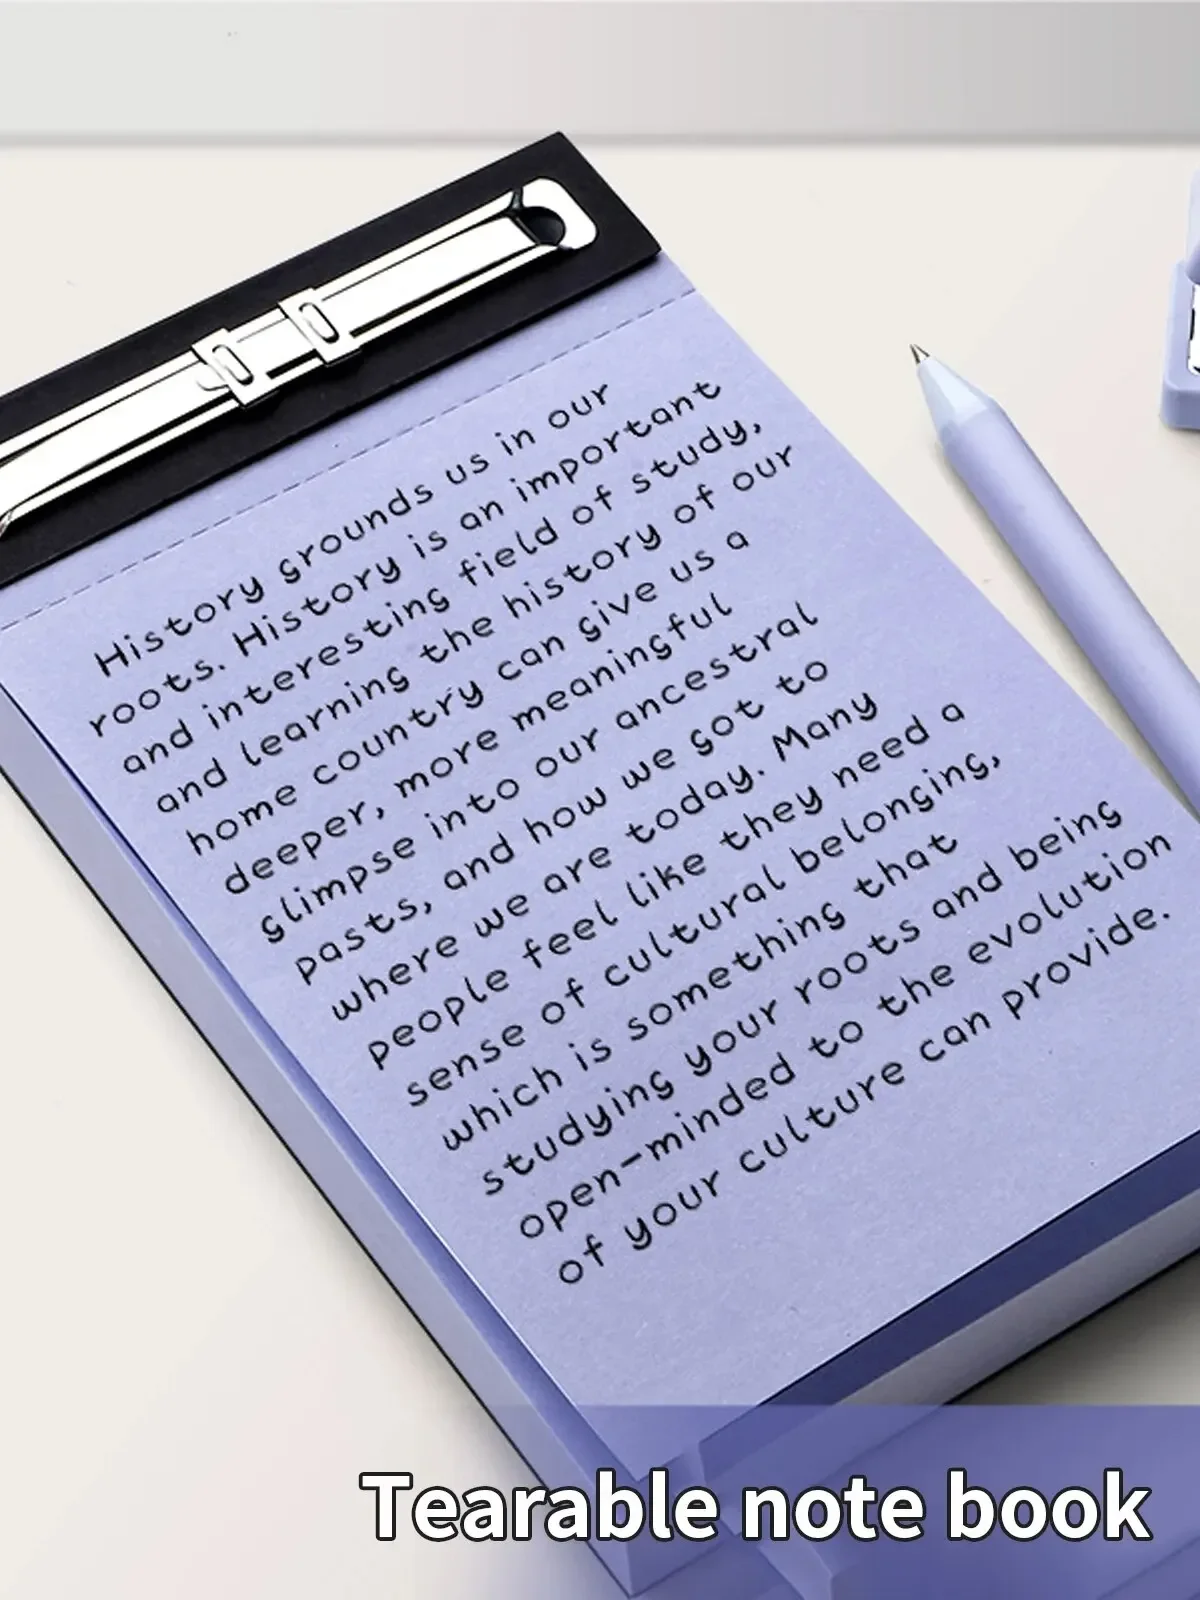 History grounds us in our
roots. History is an important
and interesting field of study,
and learning the history of our
home country can give us a
deeper, more meaningful
glimpse into our ancestral
pasts, and how we got to
where we are today. Many
people feel like they need a
sense of cultural belonging,
which is something that
studying your roots and being
open-minded to the evolution
of your culture can provide.
Tearable note book